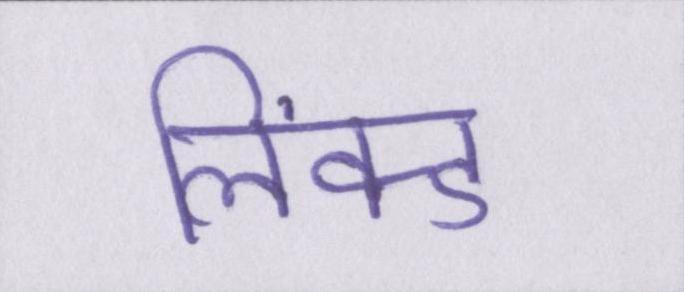 लिंक्ड